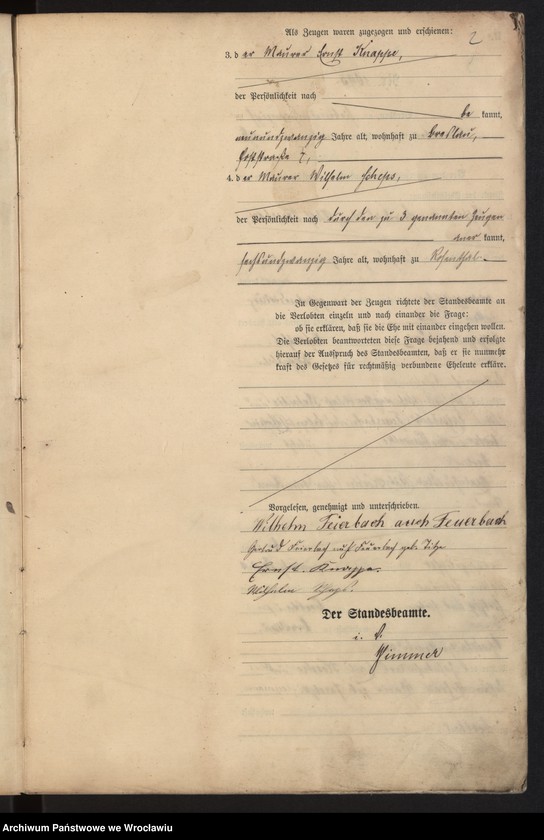 Als Zeugen waren zugezogen und erschienen:
2
3. der Maurer Ernst Knappe,
der Persönlichkeit nach
be kannt,
neunundzwanzig Jahre alt, wohnhaft zu Breslau,
straße 7,
4. der Maurer Wilhelm Scheps,
der Persönlichkeit nach durch den zu 3 genannten Zeugen
aner kannt,
sechsundzwanzig Jahre alt, wohnhaft zu Rosenthal.
In Gegenwart der Zeugen richtete der Standesbeamte an
die Verlobten einzeln und nach einander die Frage:
ob sie erklären, daß sie die Ehe mit einander eingehen wollen.
Die Verlobten beantworteten diese Frage bejahend und erfolgte
hierauf der Ausspruch des Standesbeamten, daß er sie nunmehr
kraft des Gesetzes für rechtmäßig verbundene Eheleute erkläre.
Vorgelesen, genehmigt und unterschrieben.
Wilhelm Feierbach auch Feuerbach
Gertrud Feierbach auch Feuerbach geb. Titze
Ernst. Knappe.
Wilhelm Scheps.
Der Standesbeamte.
i. V.
Zimmer
Archiwum Państwowe we Wrocławiu